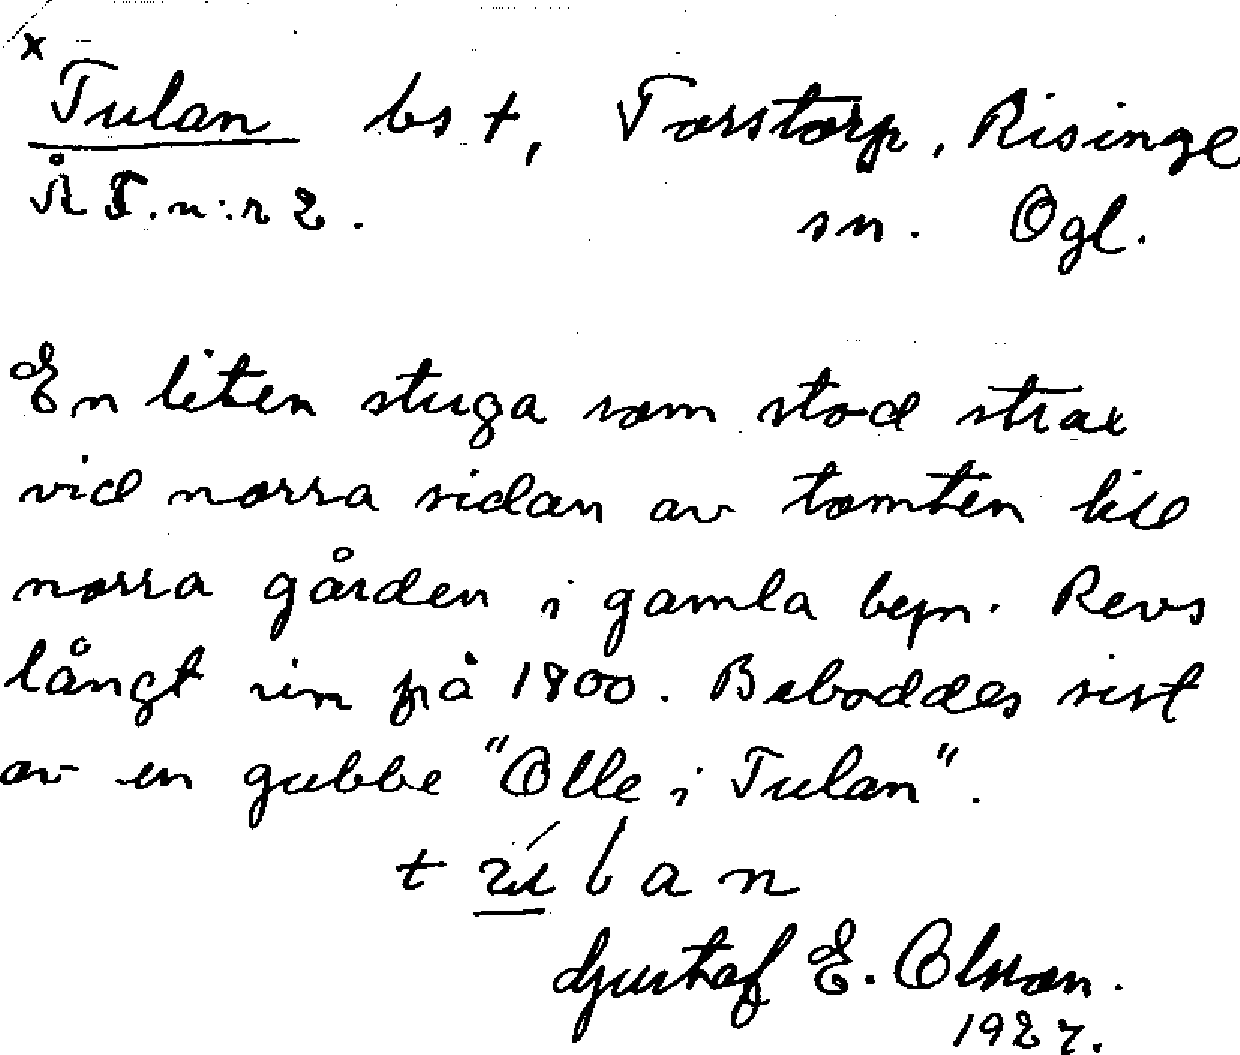 x
Tulan bst, Torstorp, Risinge
ÅT. n:r 2. sn. Ögl.
En liten stuga som stod strax
vid norra sidan av tomten till
norra gården i gamla byn. Revs
långt inn på 1800. Beboddes sist
av en gubbe "Olle i Tulan".
Gustaf E. Olsson.
1927.